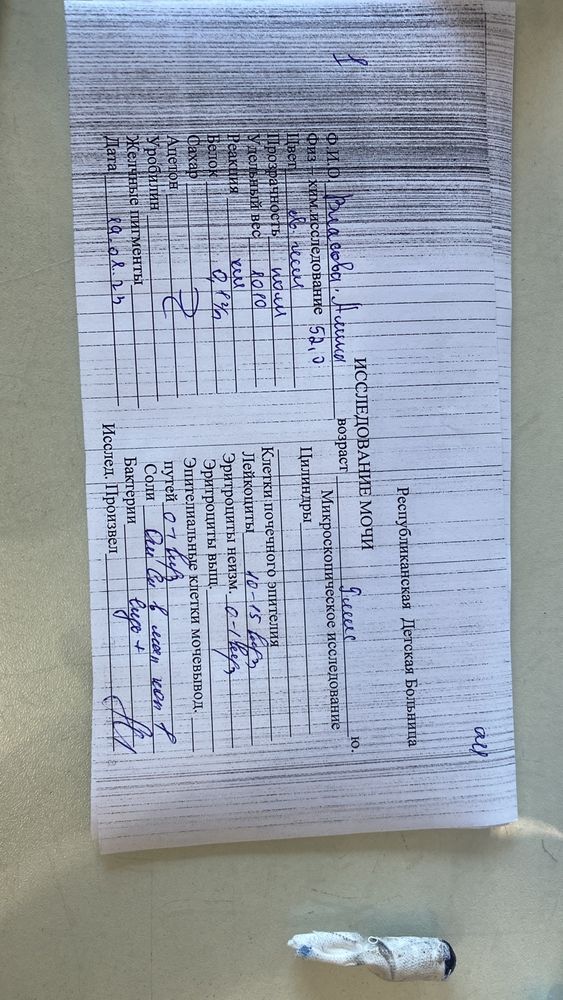 ач
Республиканская Детская Больница
ИССЛЕДОВАНИЕ МОЧИ
Ф.И.О. Власова Амина возраст 9 мес
Физ – хим.исследование 52,0
Цвет св. жел
Прозрачность полн
Удельный вес 1010
Реакция кис
Белок
Сахар
Ацетон
Уробилин
Желчные пигменты
Дата 19.08.23
Микроскопическое исследование
Цилиндры
Клетки почечного эпителия
Лейкоциты 10-15 в п/з
Эритроциты неизм. 0-1 в п/з
Эритроциты выщ.
Эпителиальные клетки мочевывод.
путей 0-1 в п/з
Соли
Бактерии
Исслед. Произвел